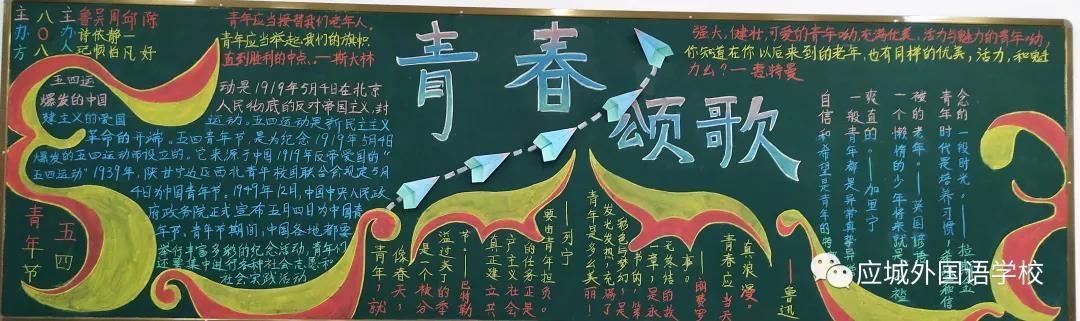 主办方
八〇八
主办人
鲁吴周邱陈
诗依静一
记顺怡凡好
青年应当接替我们老年人。
青年应当举起我们的旗帜
直到胜利的中点。一斯大林
青春
颂歌
强大,健壮,可爱的青年呦,充满优美,活力与魅力的青年呦,
你知道在你以后来到的老年,也有同样的优美,活力,和魅
力么?一惠特曼
五四运
动是1919年5月4日在北京
爆发的中国
人民彻底的反对帝国主义,封
建主义的爱国
运动。五四运动是新民主主义
革命的开端。五四青年节,是为纪念1919年5月4日
爆发的五四运动而设立的。它来源于中国1919年反帝爱国的"
五四运动"1939年,陕甘宁边区西北青年救国联合会规定5月
4日为中国青年节,1949年12月,中国中央人民政
府政务院正式宣布五月四日为中国青
年节。青年节期间,中国各地都要
举行丰富多彩的纪念活动,青年们
还要集中进行各种社会志愿和
社会实践活动
五四
青年节
青年,就
像春天,
是一个被分
溢过美的季
节。一巴特勒
真正建立共
产主义社会
的任务正是
要由青年担负。
——列宁
青年是多么美丽!
发光发热,充满了
彩色与梦幻,是
书的第
一章,是永
无终结的故
事。
青春应当
真浪漫。
——鲁迅
念的一段时光。
青年时代是培养习惯,希
——英国谚语
一个懒惰的少年将来就是
被的老年。
爽直的。——加里宁
一般青年都是异常真挚
自信和希望是青年的特
应城外国语学校